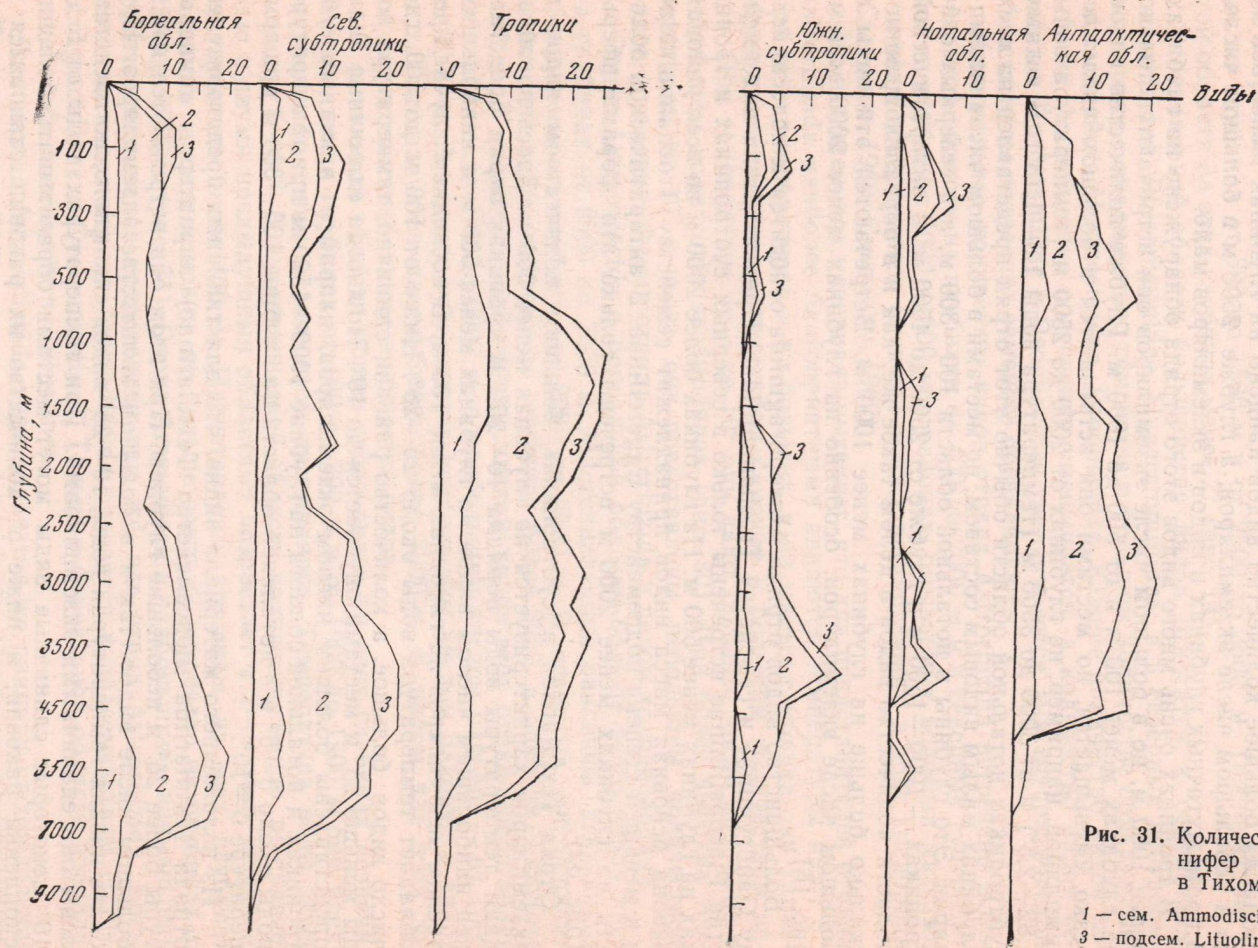 Бореальная
обл.
Сев.
субтропики
Тропики
Южн.
субтропики
Нотальная
обл.
Антарктичес-
кая обл.
0 10 20
0 10 20
0 10 20
0 10 20
0 10
0 10 20
виды
Глубина, м
100
300
500
1000
1500
2000
2500
3000
3500
4500
5500
7000
9000
1 2 3
1 2 3
1 2 3
1 2 3
1 2 3
1 2 3
1 2 3
1 2 3
1 2 3
1 3
3
1 2 3
1
1 2 3
1 3
1
1 2 3
1 2 3
Рис. 31. Количес
нифер
в Тихом
1 — сем. Ammodisc
3 — подсем. Lituolin